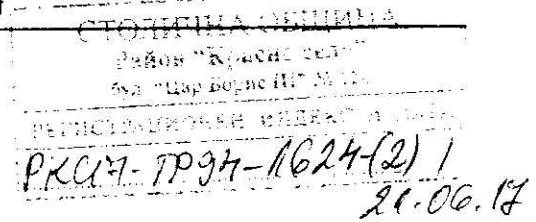 СТОЛИЧНА ОБЩИНА
Район "Красно село"
бул. "Цар Борис III" №
РЕГИСТРАЦИОНЕН ИНДЕКС И
РКС17-ТР94-1624-(2) /
21.06.17